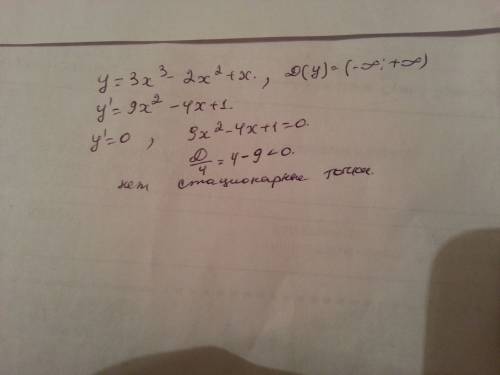 y = 3x³ - 2x² + x. , D(y) = (-∞; +∞)
y' = 9x² - 4x + 1.
y' = 0 , 9x² - 4x + 1 = 0.
D/4 = 4 - 9 < 0.
нет стационарные точки.